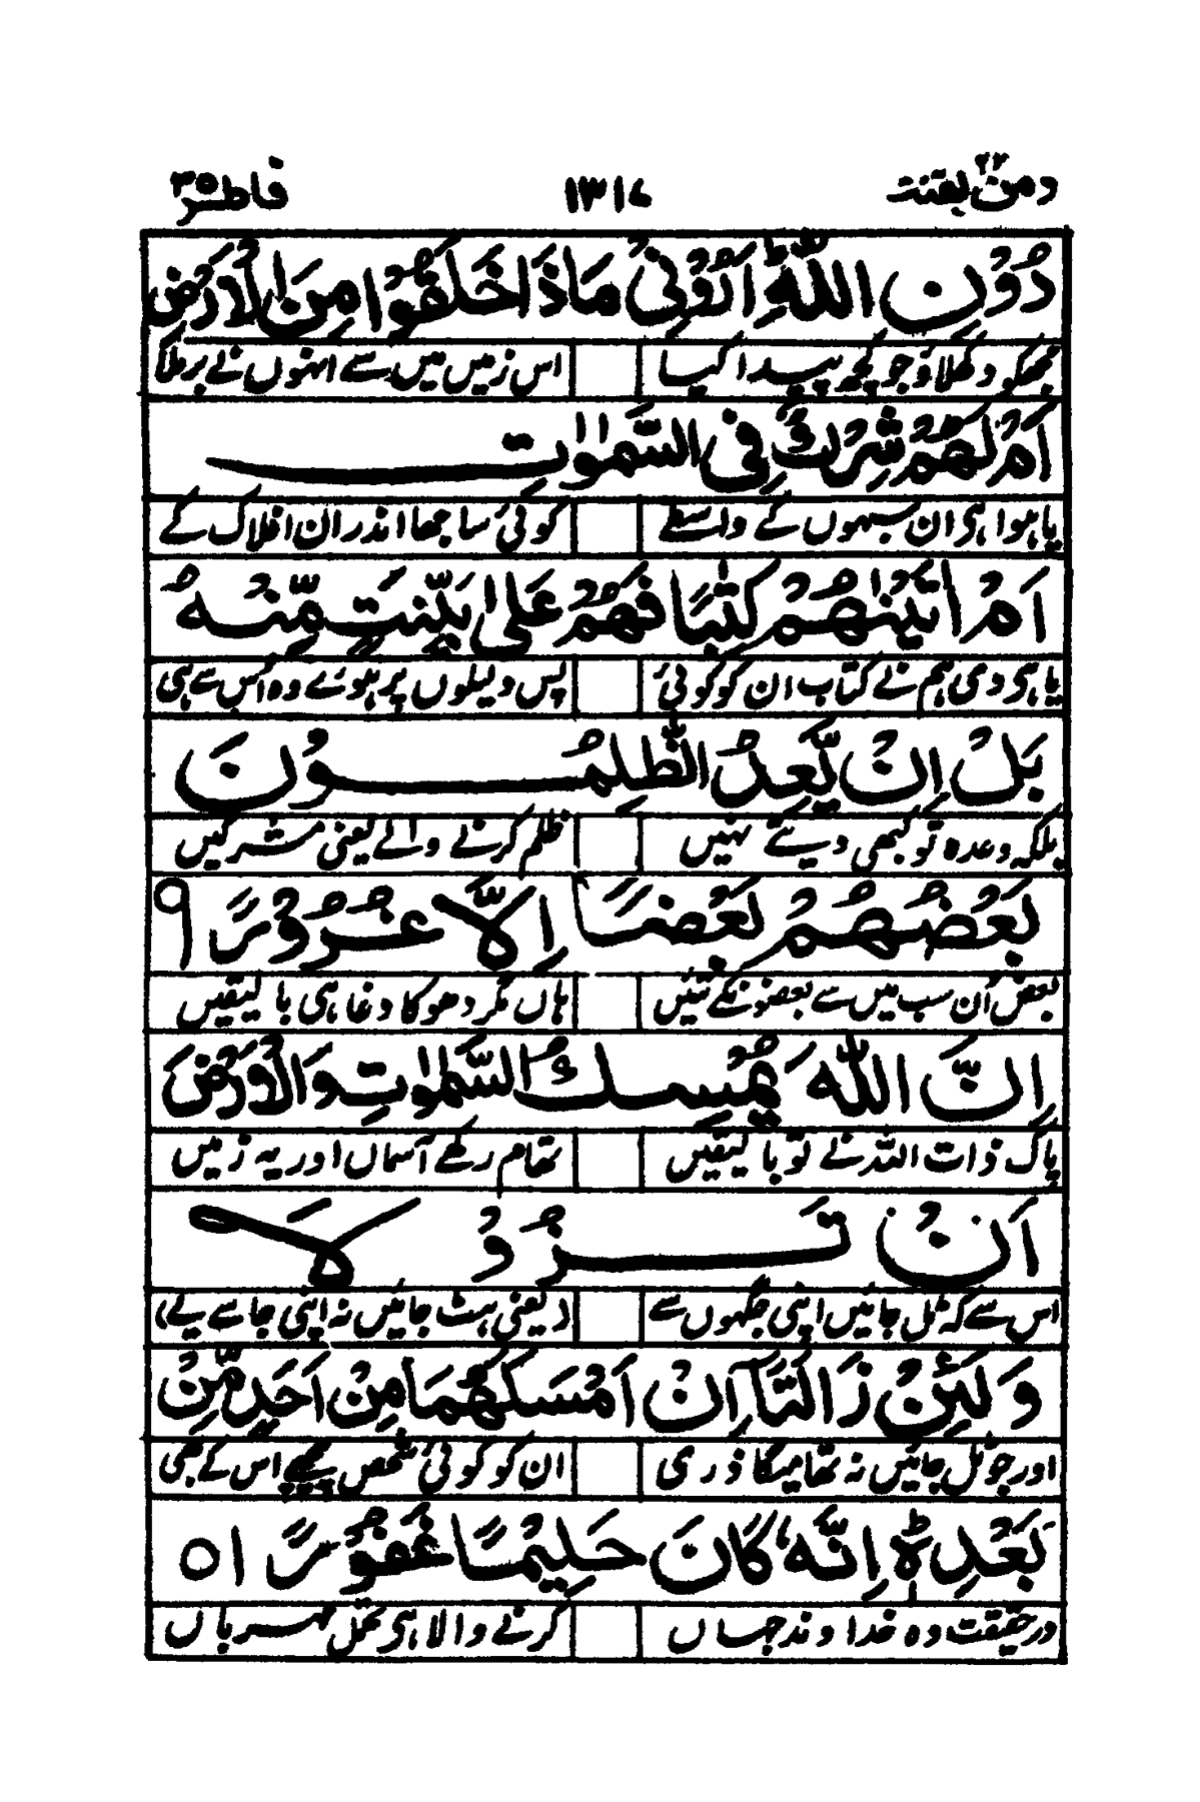 ومن یقنت ۲۲ ۱۳۱۷ فاطر ۳۵
دُوْنِ اللّٰهِ ؕ اَرُوْنِیْ مَاذَا خَلَقُوْا مِنَ الْاَرْضِ
مجھکو دکھلاؤ جو کچھ پیدا کیا اس زمیں میں سے انہوں نے برملا
اَمْ لَهُمْ شِرْكٌ فِی السَّمٰوٰتِ
یا ہوا ہی ان سبہوں کے واسطے کوئی ساجھا اندر ان افلاک کے
اَمْ اٰتَیْنٰهُمْ كِتٰبًا فَهُمْ عَلٰی بَیِّنَتٍ مِّنْهُ
یا ہی دی ہم نے کتاب ان کو کوئی پس دلیلوں پر ہوئے وہ اس سے ہی
بَلْ اِنْ یَّعِدُ الظّٰلِمُوْنَ
بلکہ وعدہ تو کبھی دیتے نہیں ظلم کرنے والے یعنی مشرکیں
بَعْضُهُمْ بَعْضًا اِلَّا غُرُوْرًا ۹
بعض ان سب میں سے بعضونکے تئیں ہاں مگر دھوکا دغا ہی با یقیں
اِنَّ اللّٰهَ یُمْسِكُ السَّمٰوٰتِ وَالْاَرْضَ
پاک ذات اللہ نے تو با یقیں تھام رکھے آسماں اور یہ زمیں
اَنْ تَزُوْلَا
اس سے کہ ٹل جائیں اپنی جگہوں سے (یعنی ہٹ جائیں نہ اپنی جا سے یے)
وَ لَئِنْ زَالَتَاۤ اِنْ اَمْسَكَهُمَا مِنْ اَحَدٍ مِّنْۢ
اور جو ٹل جائیں نہ تھامیگا ذری ان کو کوئی شخص پیچھے اس کے بھی
بَعْدِهٖ ؕ اِنَّهٗ كَانَ حَلِیْمًا غَفُوْرًا ۵۱
درحقیقت وہ خدا وند جہاں کرنے والا ہی تحمل مہرباں